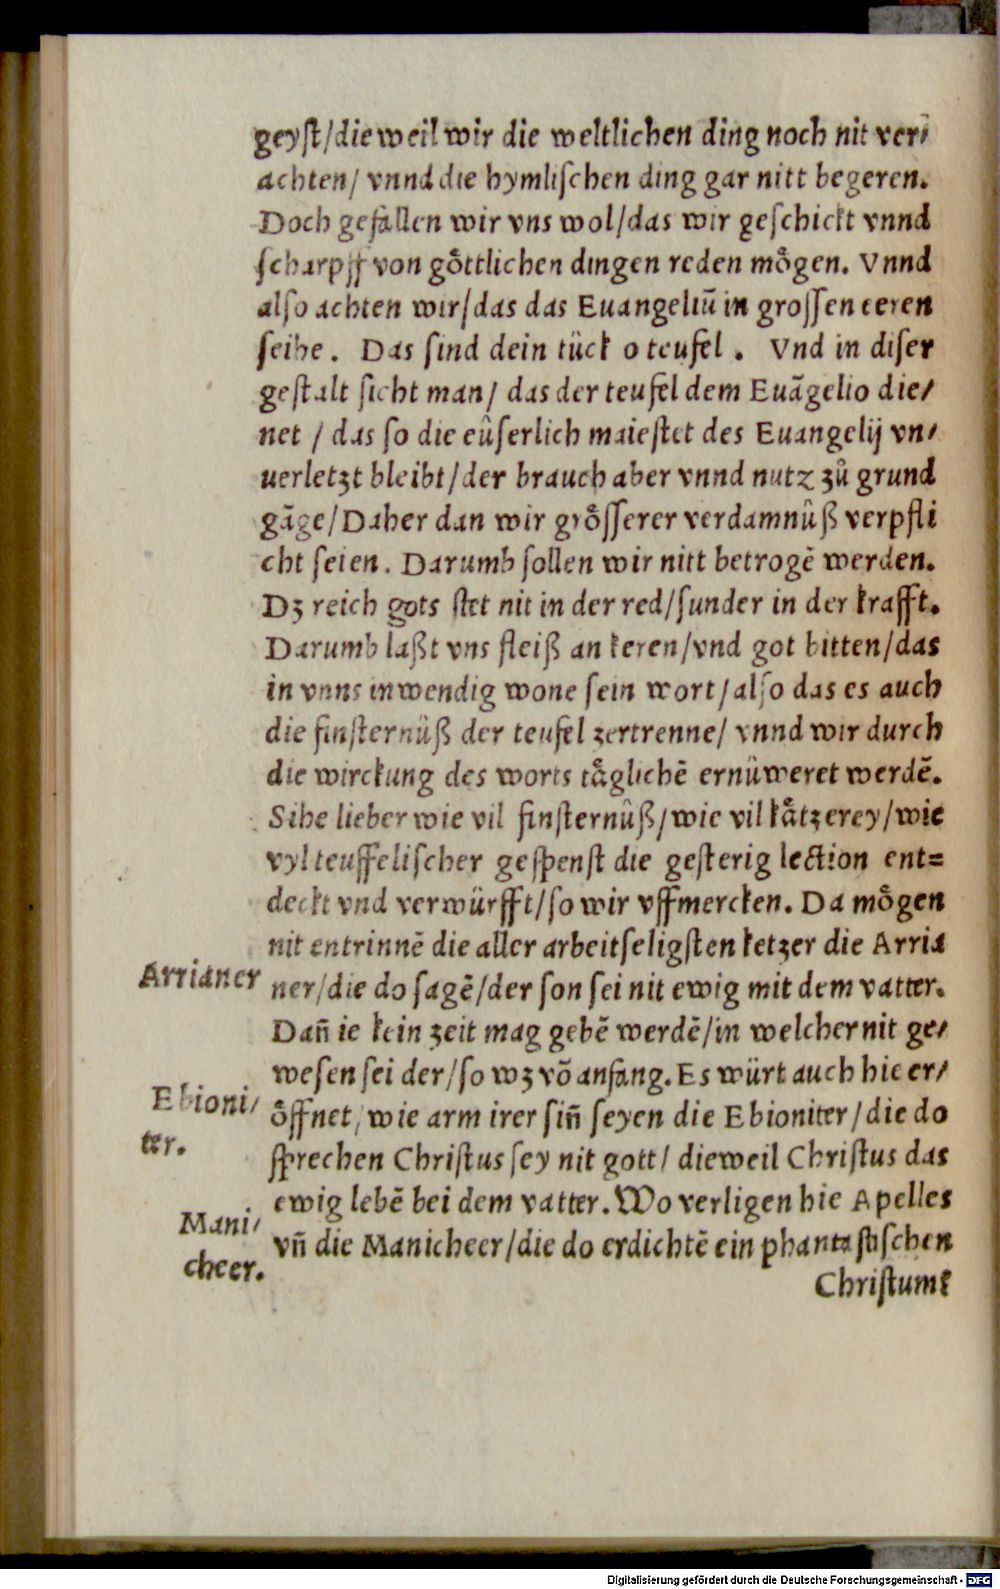 geyſt/die weil wir die weltlichen ding noch nit ver⸗
achten/ vnnd die hymliſchen ding gar nitt begeren.
Doch gefallen wir vns wol/das wir geſchickt vnnd
ſcharpff von goͤttlichen dingen reden moͤgen. Vnnd
alſo achten wir/das das Euangeliū in groſſen eeren
ſeihe. Das ſind dein tück o teufel. Vnd in diſer
geſtalt ſicht man/ das der teufel dem Euāgelio die⸗
net / das ſo die eüſerlich maieſtet des Euangelij vn⸗
uerletzt bleibt/der brauch aber vnnd nutz zů grund
gāge/Daher dan wir groͤſſerer verdamnüß verpfli
cht ſeien. Darumb ſollen wir nitt betrogē werden.
Dz reich gots ſtet nit in der red/ſunder in der krafft.
Darumb laßt vns fleiß an keren/vnd got bitten/das
in vnns inwendig wone ſein wort/alſo das es auch
die finſternüß der teufel zertrenne/ vnnd wir durch
die wirckung des worts taͤglichē ernüweret werdē.
Sihe lieber wie vil finſternüß/wie vil kaͤtzerey/wie
vyl teuffeliſcher geſpenſt die geſterig lection ent=
deckt vnd verwürfft/ſo wir vffmercken. Da moͤgen
nit entrinnē die aller arbeitſeligſten ketzer die Arria
Arrianer
ner/die do ſagē/der ſon ſei nit ewig mit dem vatter.
Dañ ie kein zeit mag gebē werdē/in welcher nit ge⸗
weſen ſei der/ſo wz vō anfang. Es würt auch hie er⸗
Ebioni⸗
ter.
oͤffnet/wie arm irer ſiñ ſeyen die Ebioniter/die do
ſprechen Chriſtus ſey nit gott/ dieweil Chriſtus das
ewig lebē bei dem vatter. Wo verligen hie Apelles
Mani⸗
cheer.
vñ die Manicheer/die do erdichtē ein phantaſtiſchen
Chriſtum?
Digitalisierung gefördert durch die Deutsche Forschungsgemeinschaft - DFG